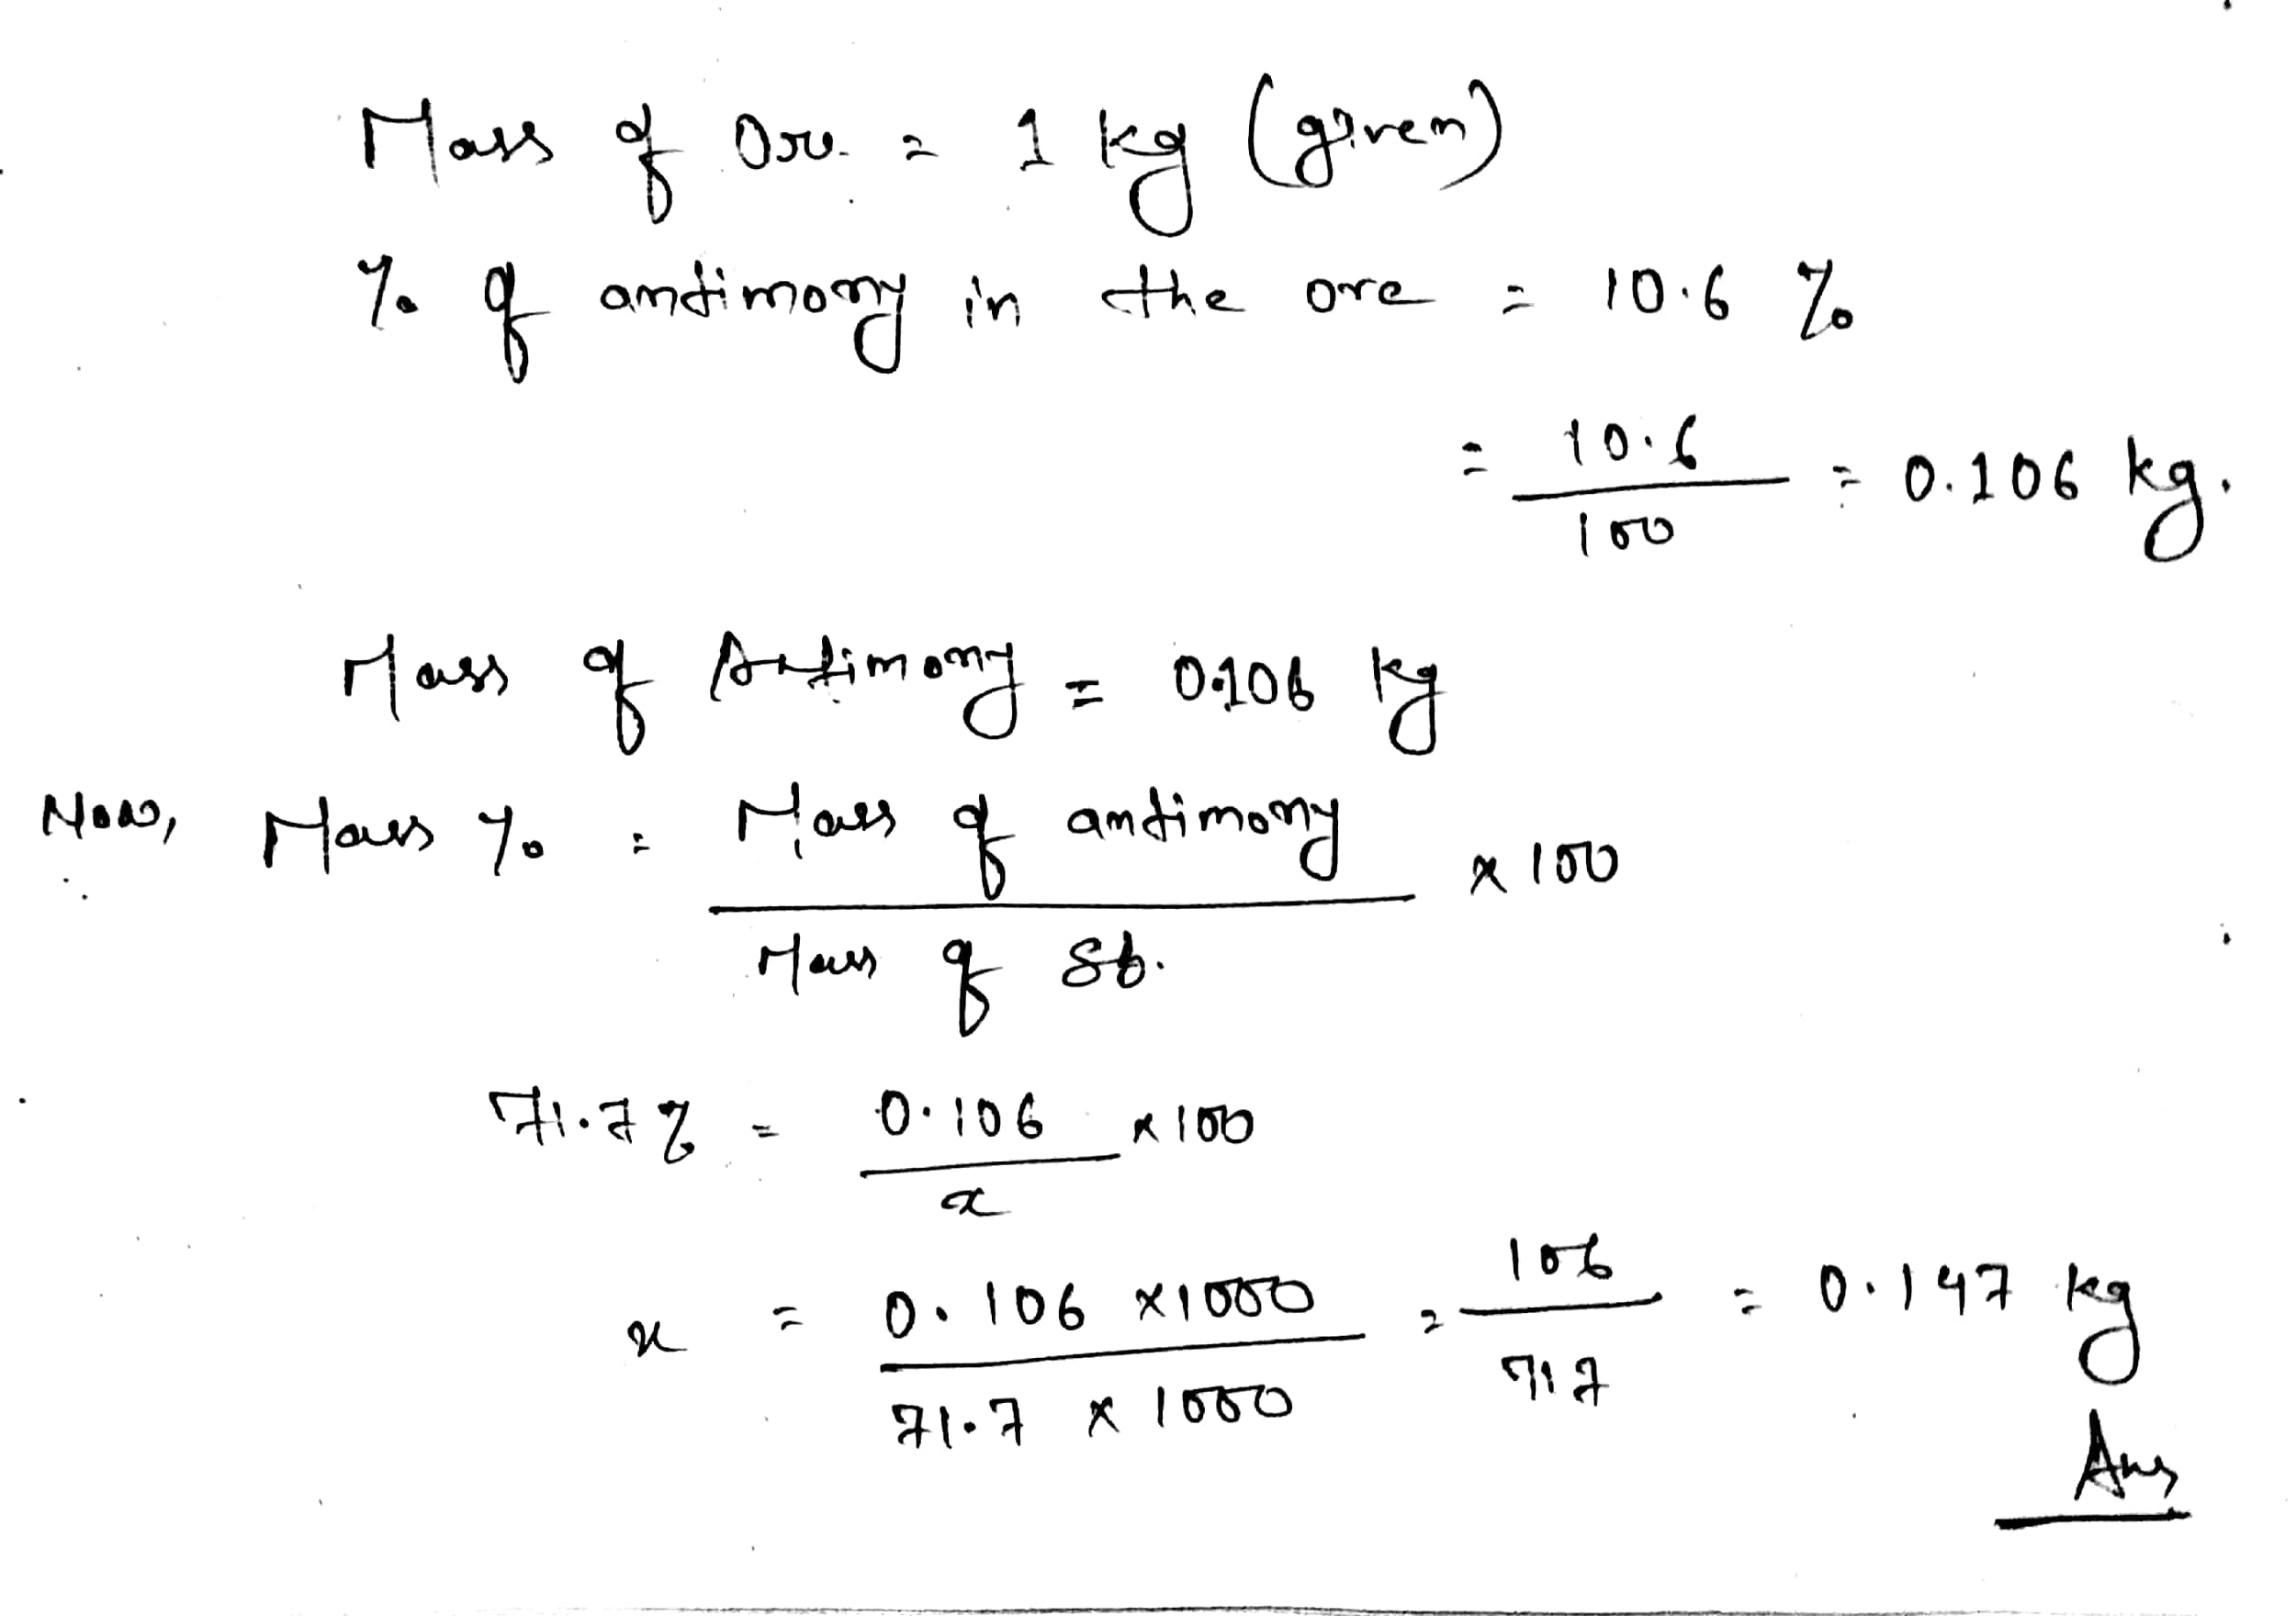 Mass of Ore = 1 kg (given)
% of antimony in the ore = 10.6 %
= 10.6 / 100 = 0.106 kg.
Mass of Antimony = 0.106 kg
Now, Mass % = Mass of antimony / Mass of Sb. x 100
71.7% = 0.106 / x x 100
x = 0.106 x 1000 / 71.7 x 1000 = 106 / 717 = 0.147 kg
Ans